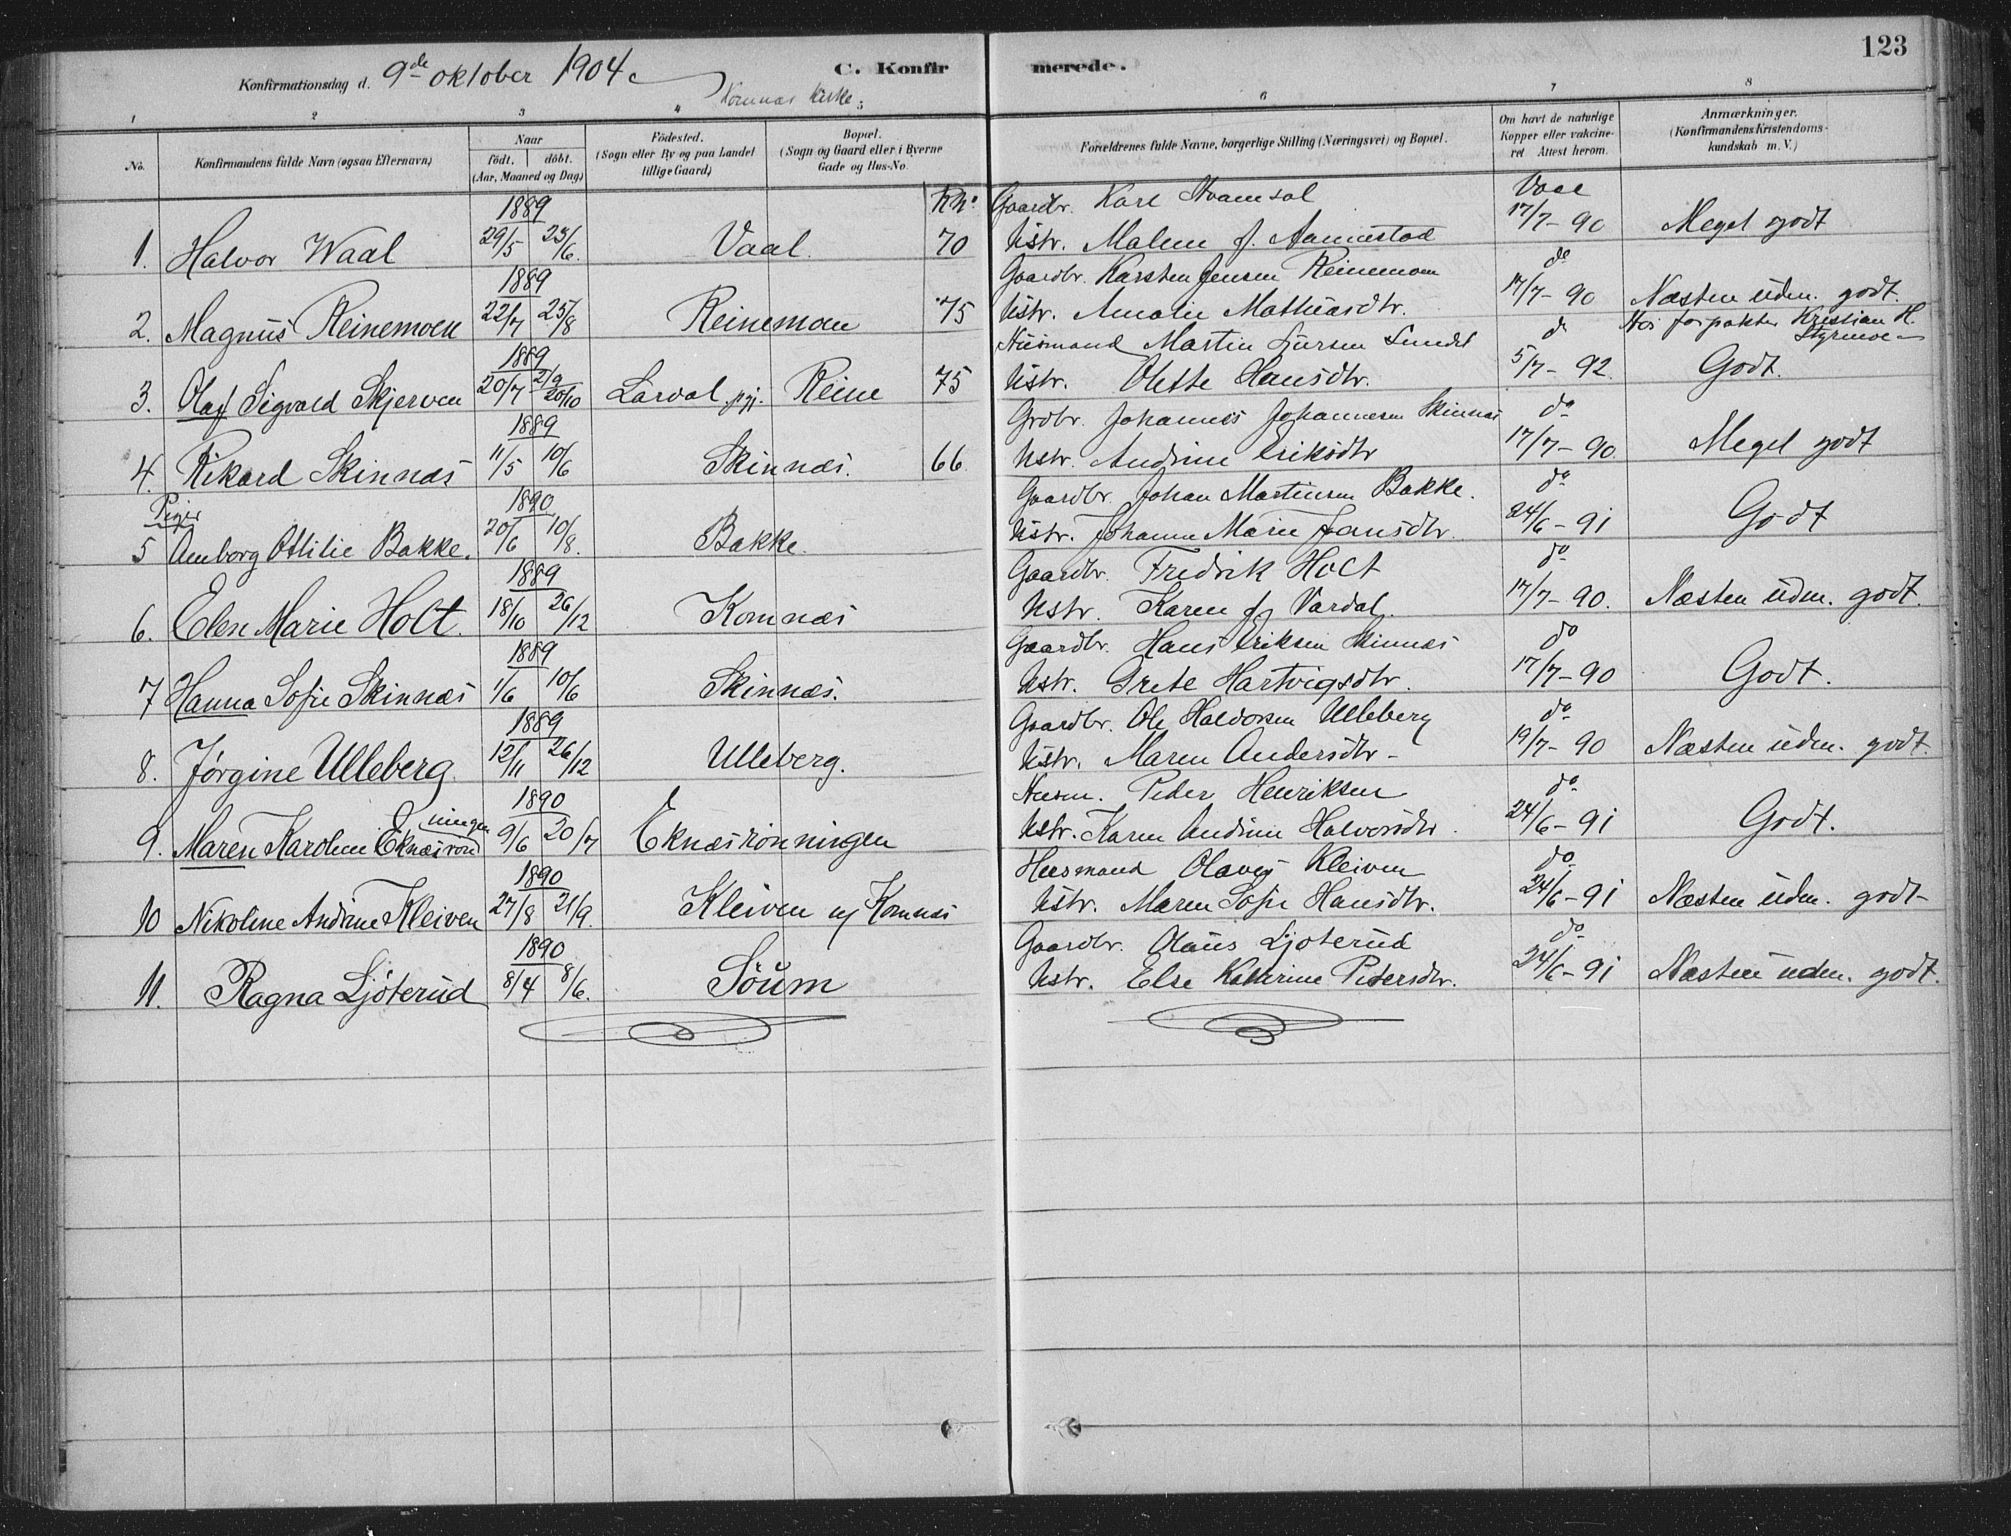 123
Konfirmationsdag d. 9de oktober 1904
C. Konfirmerede.
Komnæs Kirke
1 2 3 4 5 6 7 8
No.
Konfirmandens fulde Navn (ogsaa Efternavn)
Naar
födt. döbt.
(Aar, Maaned og Dag)
Födested.
(Sogn eller By og paa Landet tillige Gaard)
Bopæl.
(Sogn og Gaard eller i Byerne Gade og Hus-No.
Forældrenes fulde Navne, borgerlige Stilling (Næringsvei) og Bopæl.
Om havt de naturlige Kopper eller vakcineret Attest herom.
Anmærkninger.
(Konfirmandens Kristendomskundskab m. V.)
1889 Gaardbr. Karl
1. Halvor Waal 29/5 25/6 Vaal. 70 Ustr. Malene f. Aannestad 17/7-90 Meget godt
1889 Gaardbr. Karsten Jensen Reinemoen do
2. Magnus Reinemoen 22/7 25/8 Reinemoen 75 Ustr. Amalie Mathiasdtr. 17/7-90 Næsten uden. godt.
Hos forpakter Kristian H. Styrmoe
1889 Husmand Martin Larsen Sundet do
3. Olaf Sigvald Skjerven 20/7 2/9 20/10 Lardal pgj. Reine 75 Ustr. Olette Hansdtr. 5/7-92. Godt.
1889 Grdbr. Johannes Johannesen Skinnæs do
4. Rikard Skinnæs 11/5 10/6 Skinnæs. 66 Ustr. Andrine Eriksdtr 17/7-90 Meget godt
Piger
1890 Gaardbr. Johan Martinsen Bakke. do
5 Amborg Ottilie Bakke. 20/6 10/8. Bakke. Ustr. Johanne Marie Jansdtr. 24/6-91 Godt
1889 Gaardbr. Fredrik Holt do
6. Elen Marie Holt. 18/10 26/12 Komnæs Ustr. Karen f. Vardal. 17/7-90. Næsten uden. godt.
1889 Gaardbr. Hans Eriksen Skinnæs do
7 Hanna Sofie Skinnæs 1/6 10/6 Skinnæs. Ustr. Grete Hartvigsdtr. 17/7-90 Godt.
1889 Gaardbr. Ole Halvorsen Ulleberg do
8. Jørgine Ulleberg. 12/11 26/12 Ulleberg. Ustr. Maren Andersdtr- 19/7-90 Næsten uden. godt.
1890 Husm. Peder Henriksen do
9. Maren Karoline Eknæsrönningen 9/6 20/7 Eknæsrönningen Ustr. Karen Andrine Halvorsdtr. 24/6-91 Godt.
1890 Husmand Olaves Kleiven do
10 Nikoline Andrine Kleiven 27/8 21/9. Kleiven u/ Komnæs Ustr. Maren Sofie Hansdtr. 24/6-91 Næsten uden. godt-
1890 Gaardbr. Olaus Ljoterud do
11. Ragna Ljöterud 8/4 8/6. Söum Ustr. Else Katerine Pedersdtr. 24/6-91 Næsten uden. godt.